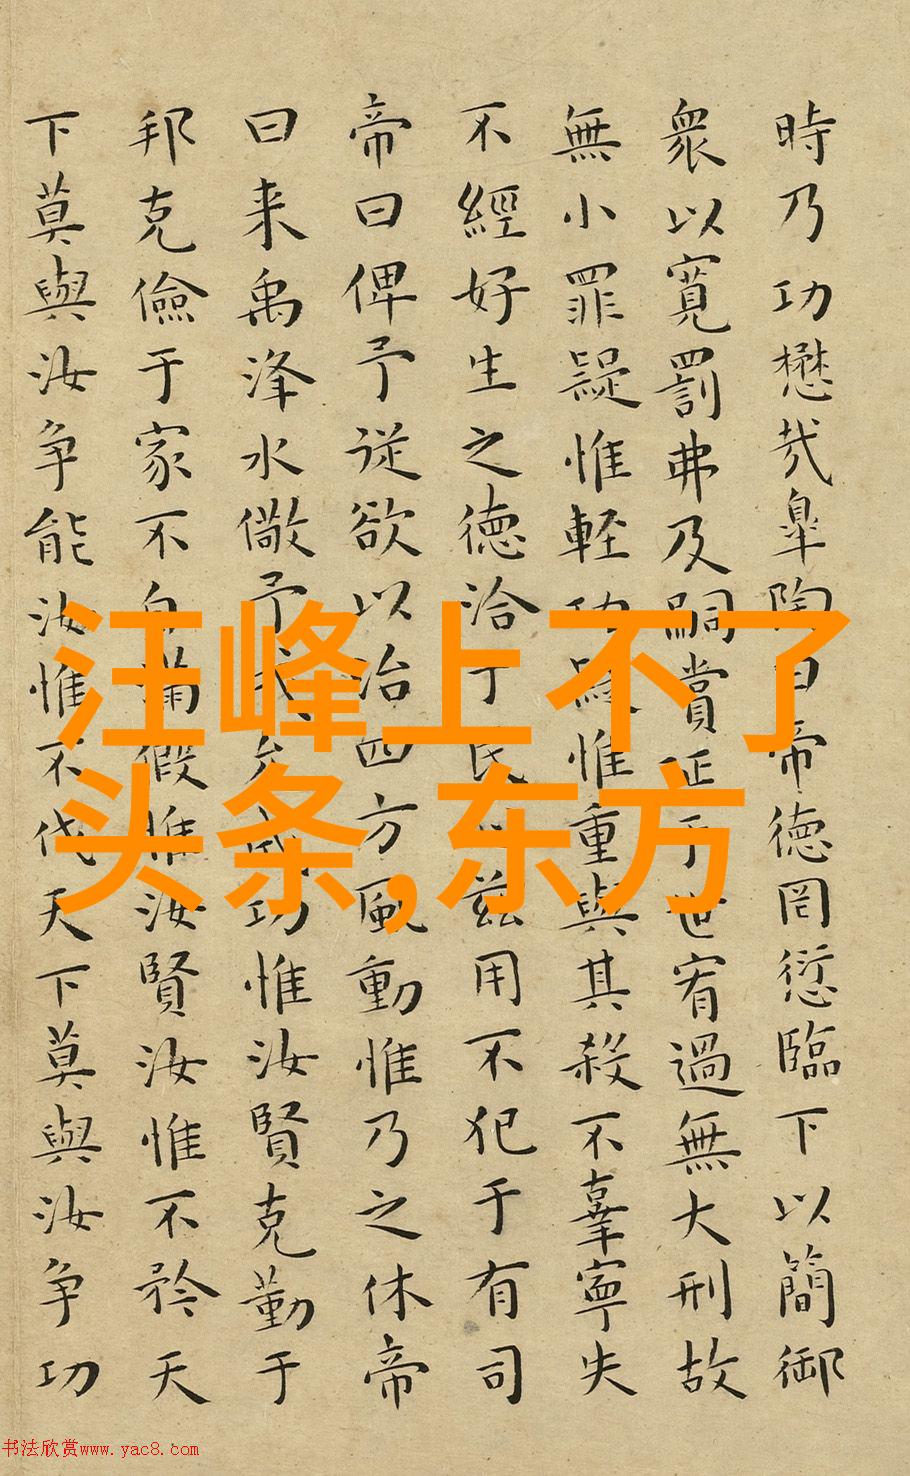 時乃功懋哉皐陶曰帝徳罔愆臨下以簡御
衆以寛罰弗及嗣賞延于世宥過無大刑故
無小罪疑惟軽功疑惟重與其殺不辜寧失
不經好生之徳洽于民心茲用不犯于有司
帝曰俾予従欲以治四方風動惟乃之休帝
曰来禹洚水儆予成允成功惟汝賢克勤于
邦克儉于家不自滿假惟汝賢汝惟不矜天
下莫與汝争能汝惟不伐天下莫與汝争功
汪峰上不了
头条,东方
书法欣赏www.yac8.com